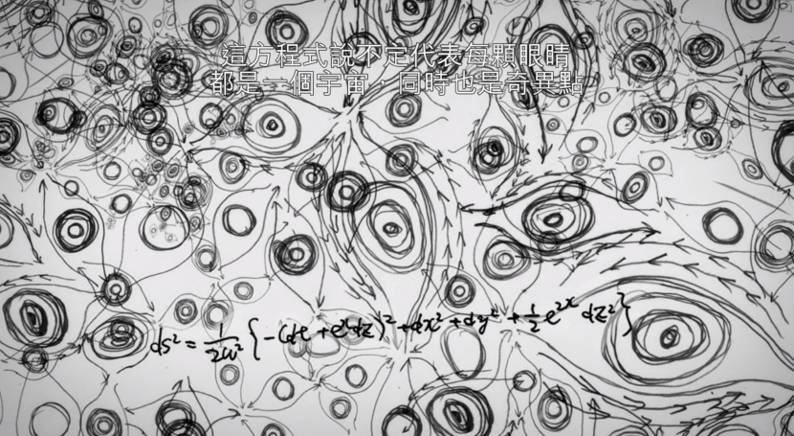 這方程式說不定代表每顆眼睛
都是一個宇宙，同時也是奇異點
ds² = 1/2ω² {-(dt + eˣdz)² + dx² + dy² + ½e²ˣ dz²}